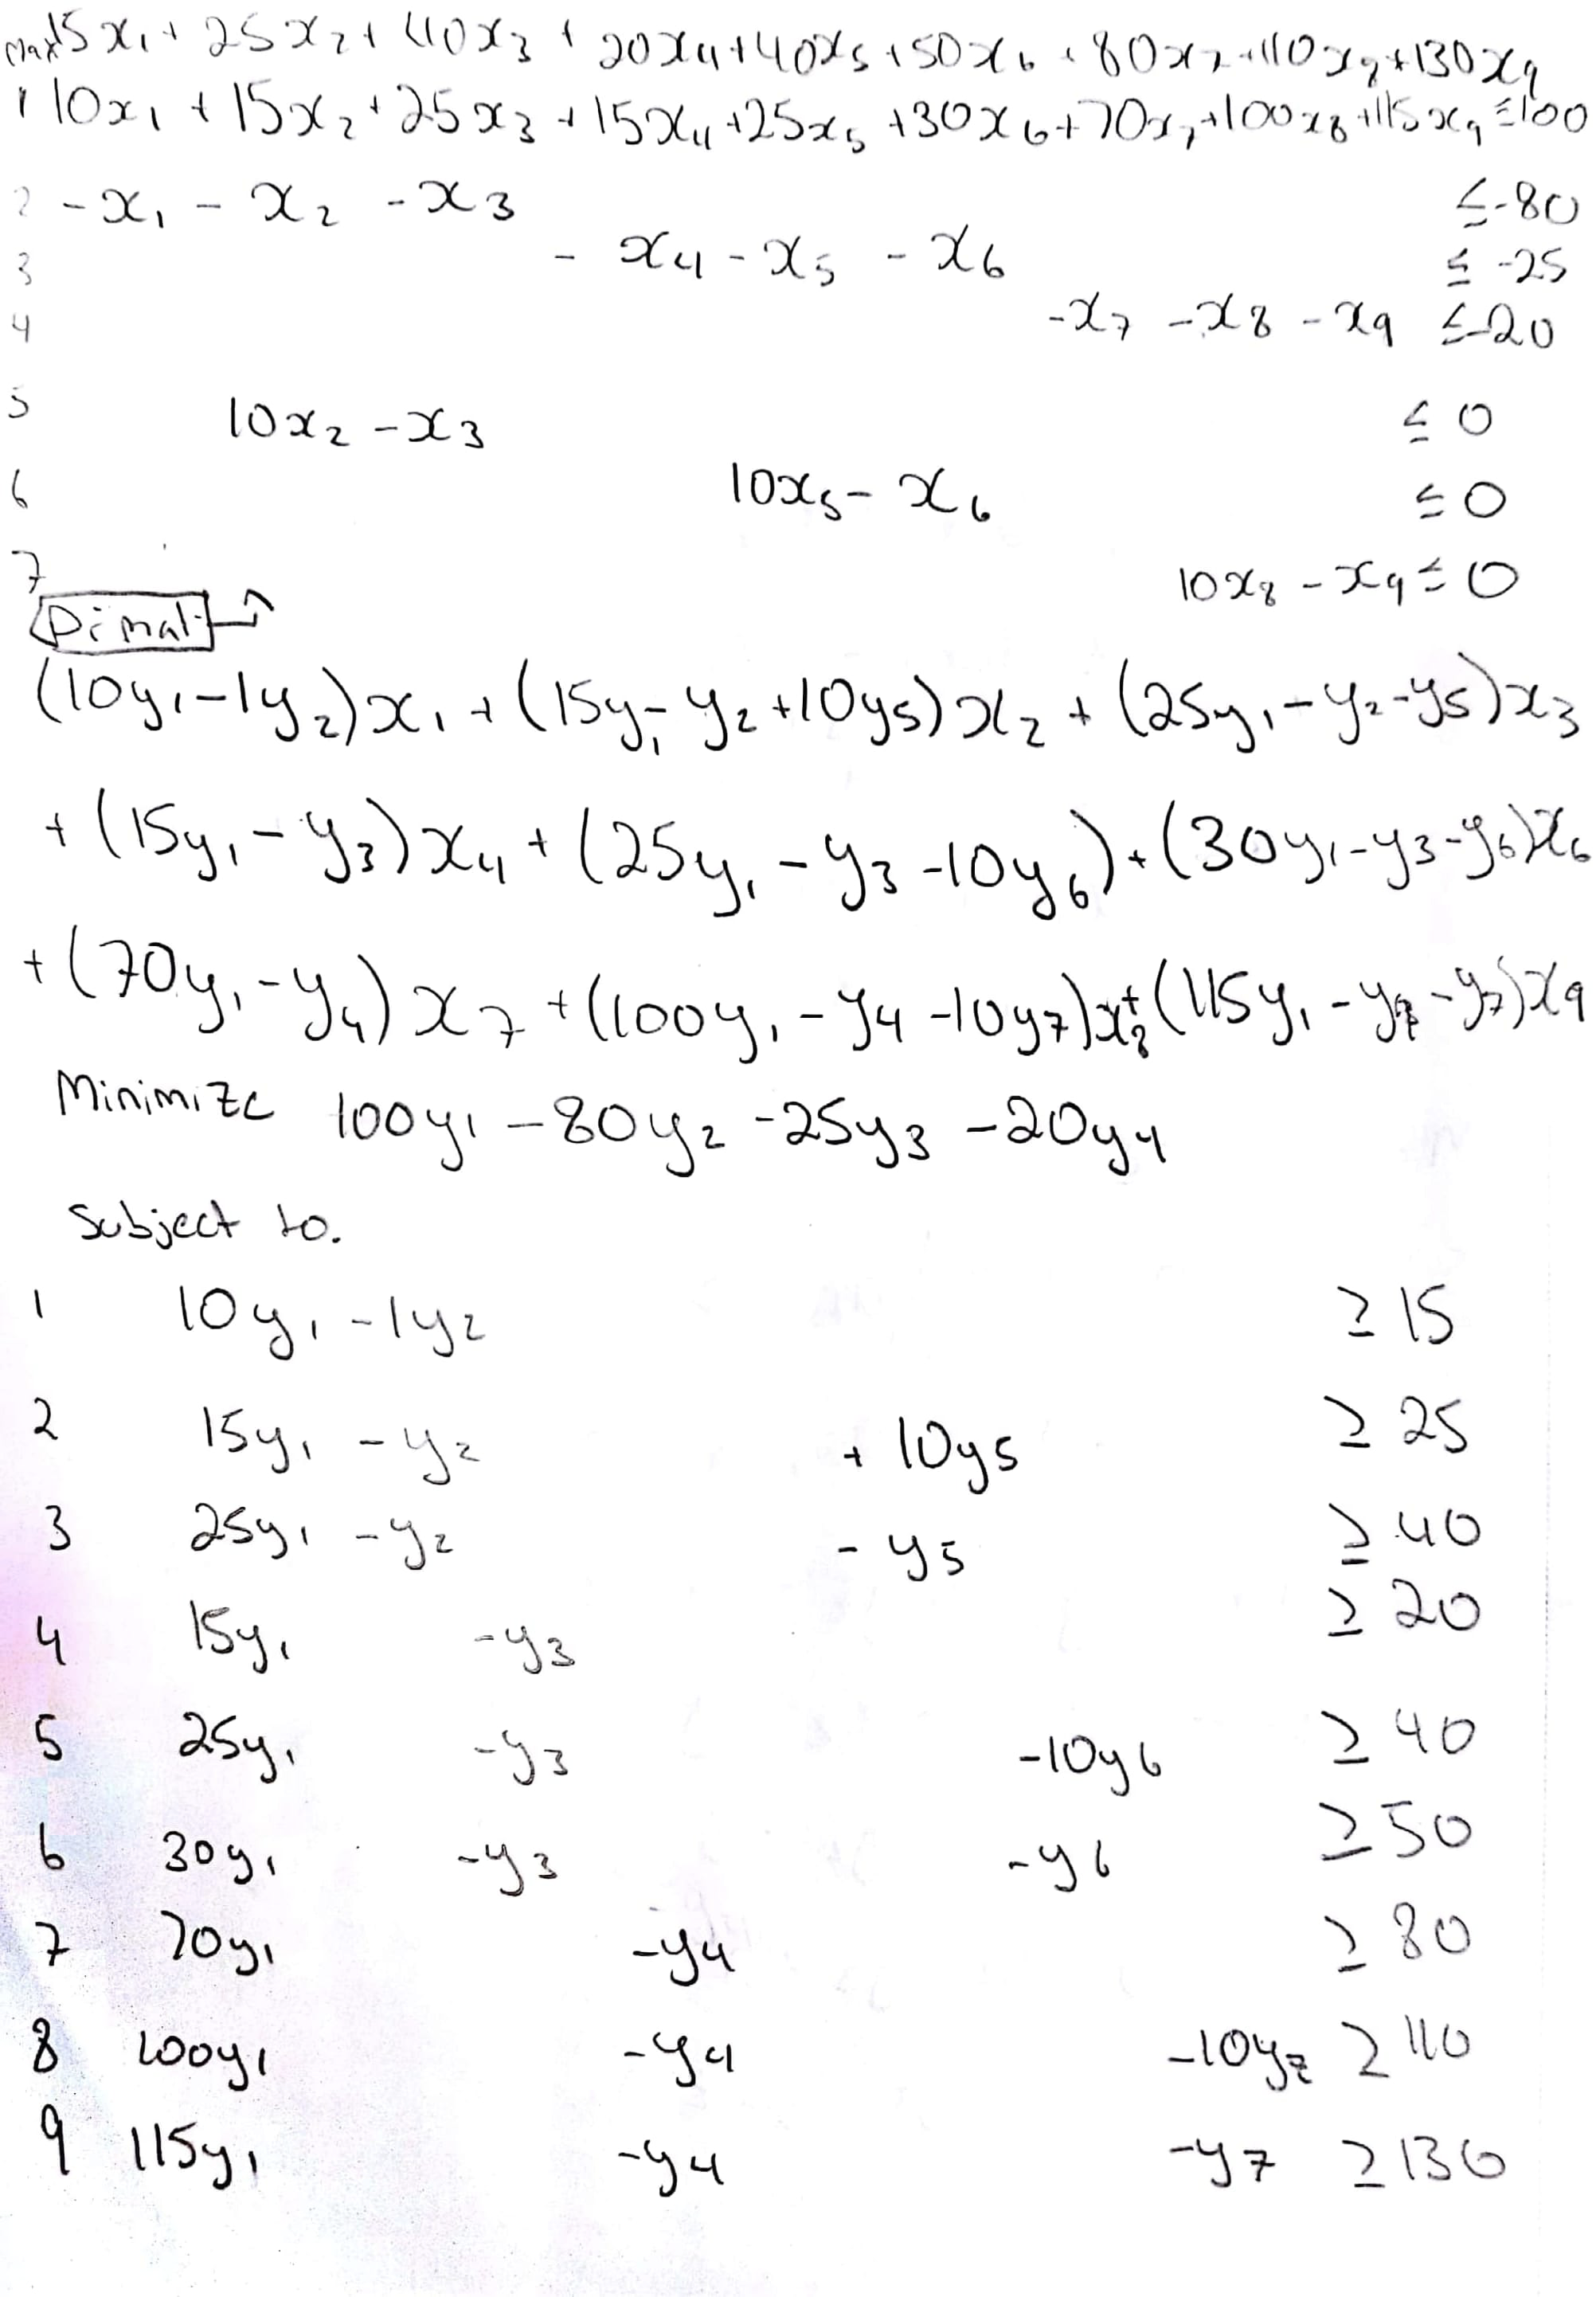 max 15x₁ + 25x₂ + 40x₃ + 20x₄ + 40x₅ + 50x₆ + 80x₇ + 110x₈ + 130x₉
1 10x₁ + 15x₂ + 25x₃ + 15x₄ + 25x₅ + 30x₆ + 70x₇ + 100x₈ + 115x₉ ≤ 100
2 -x₁ - x₂ - x₃ ≤ -80
3 - x₄ - x₅ - x₆ ≤ -25
4 -x₇ - x₈ - x₉ ≤ -20
5 10x₂ - x₃ ≤ 0
6 10x₅ - x₆ ≤ 0
7 10x₈ - x₉ ≤ 0
Primal
(10y₁ - 1y₂)x₁ + (15y₁ - y₂ + 10y₅)x₂ + (25y₁ - y₂ - y₅)x₃
+ (15y₁ - y₃)x₄ + (25y₁ - y₃ - 10y₆) + (30y₁ - y₃ - y₆)x₆
+ (70y₁ - y₄)x₇ + (100y₁ - y₄ - 10y₇)x₈ + (115y₁ - y₄ - y₇)x₉
Minimize 100y₁ - 80y₂ - 25y₃ - 20y₄
Subject to.
1 10y₁ - 1y₂ ≥ 15
2 15y₁ - y₂ + 10y₅ ≥ 25
3 25y₁ - y₂ - y₅ ≥ 40
4 15y₁ - y₃ ≥ 20
5 25y₁ - y₃ - 10y₆ ≥ 40
6 30y₁ - y₃ - y₆ ≥ 50
7 70y₁ - y₄ ≥ 80
8 100y₁ - y₄ - 10y₇ ≥ 110
9 115y₁ - y₄ - y₇ ≥ 130